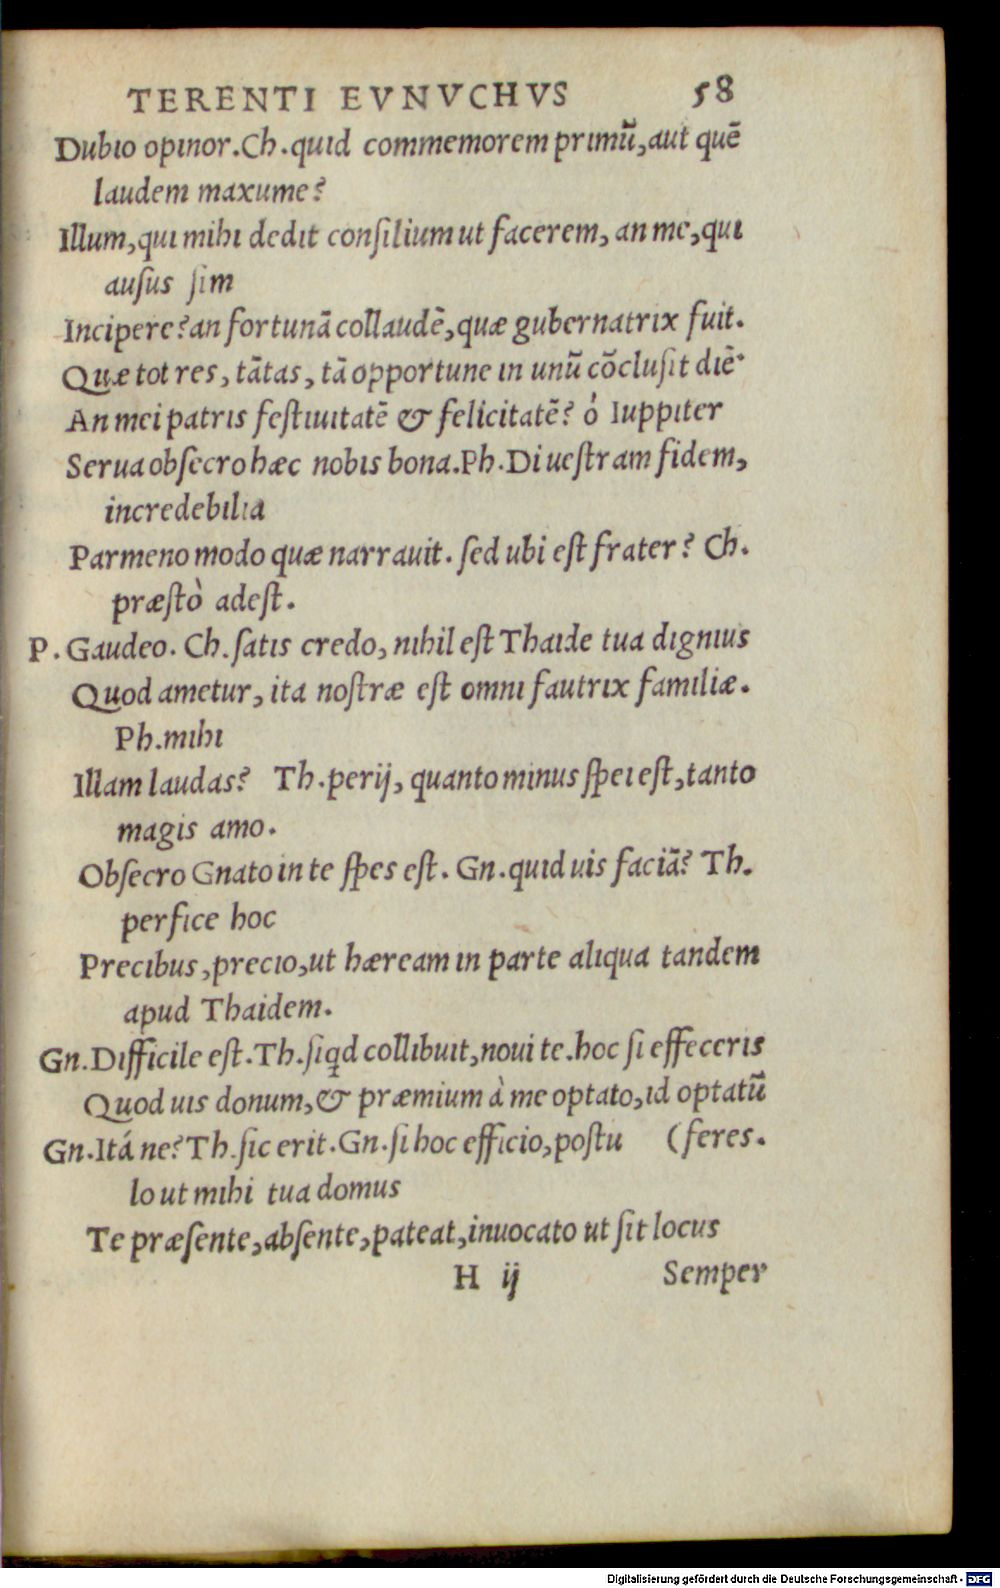 TERENTI EVNVCHVS 58
Dubio opinor. Ch. quid commemorem primũ, aut quẽ
laudem maxume?
Illum, qui mihi dedit conſilium ut facerem, an me, qui
auſus ſim
Incipere? an fortunã collaudẽ, quæ gubernatrix fuit.
Quæ tot res, tãtas, tã opportune in unũ cõcluſit diẽ.
An mei patris feſtiuitatẽ & felicitatẽ? ò Iuppiter
Serua obſecro hæc nobis bona. Ph. Di ueſtram fidem,
incredebilia
Parmeno modo quæ narrauit. ſed ubi eſt frater? Ch.
præſtò adeſt.
P. Gaudeo. Ch. ſatis credo, nihil eſt Thaide tua dignius
Quod ametur, ita noſtræ eſt omni fautrix familiæ.
Ph. mihi
Illam laudas? Th. perij, quanto minus ſpei eſt, tanto
magis amo.
Obſecro Gnato in te ſpes eſt. Gn. quid uis faciã? Th.
perfice hoc
Precibus, precio, ut hæream in parte aliqua tandem
apud Thaidem.
Gn. Difficile eſt. Th. ſiqd collibuit, noui te. hoc ſi effeceris
Quod uis donum, & præmium à me optato, id optatũ
Gn. Itá ne? Th. ſic erit. Gn. ſi hoc efficio, poſtu (feres.
lo ut mihi tua domus
Te præſente, abſente, pateat, inuocato ut ſit locus
H ij Semper
Digitalisierung gefördert durch die Deutsche Forschungsgemeinschaft - DFG